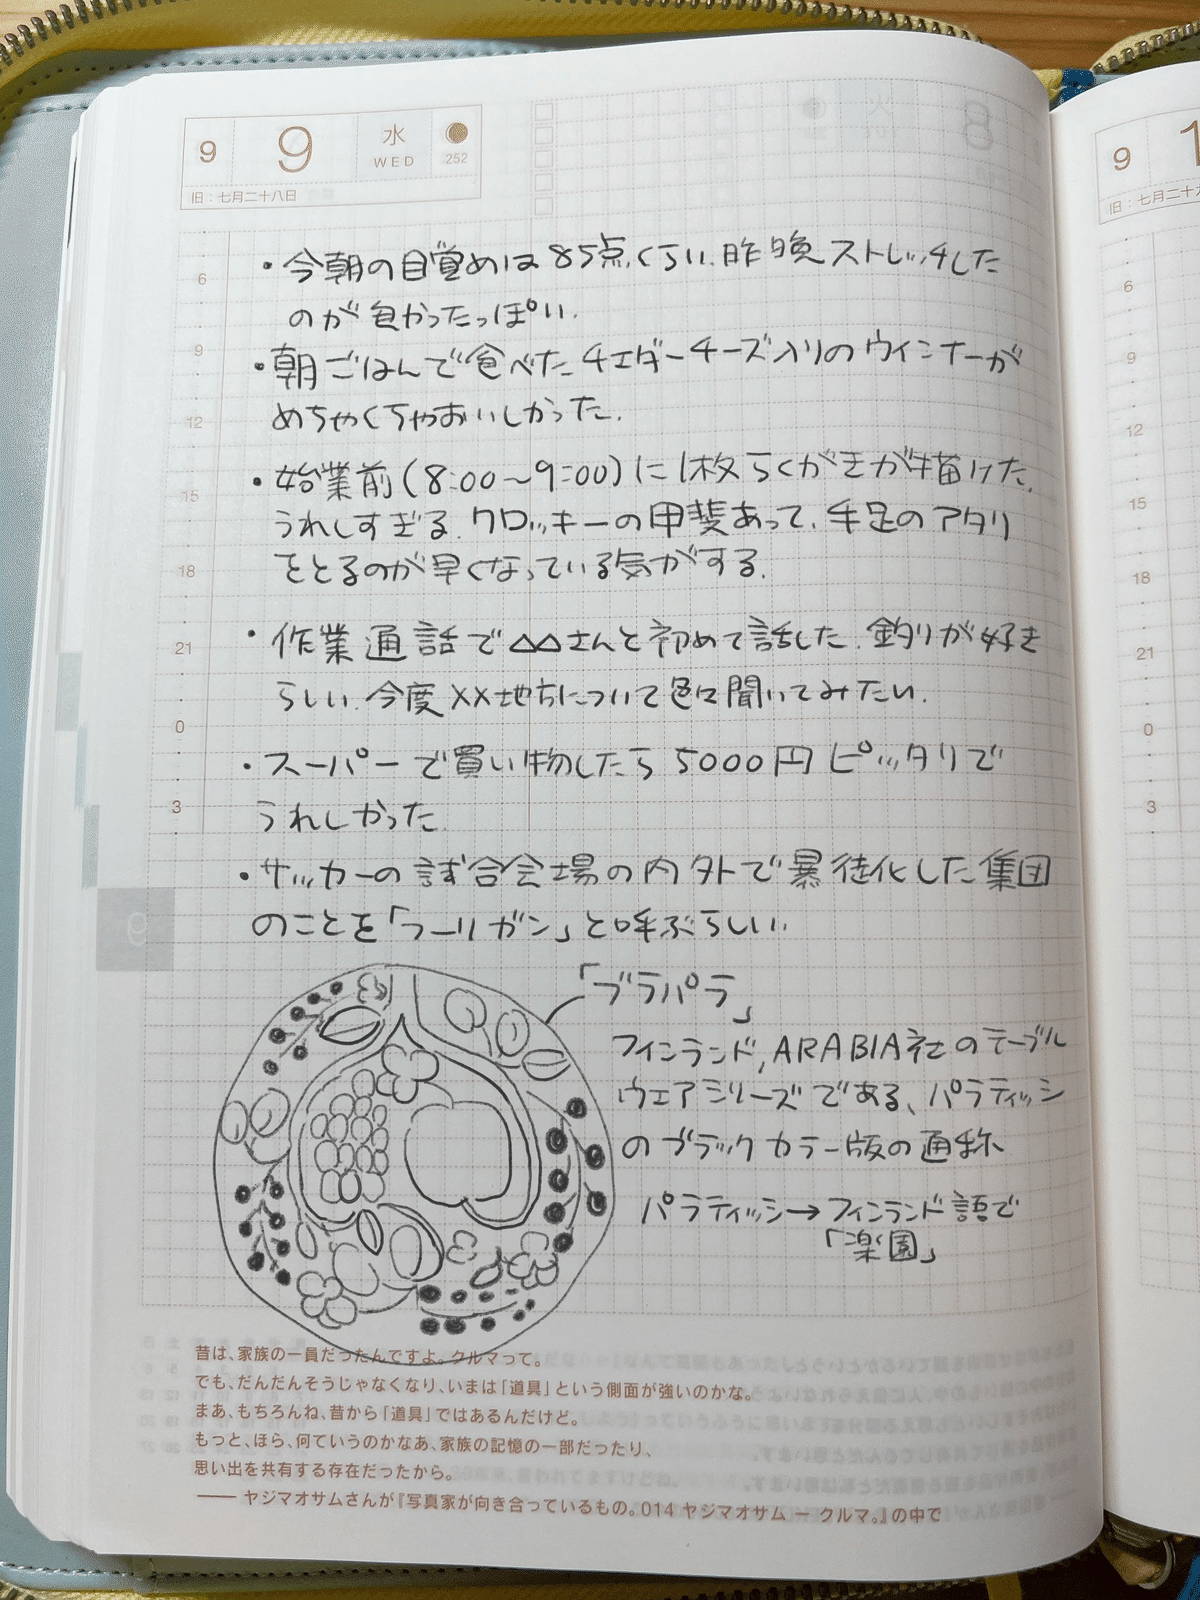 9 9 水 WED 252
旧：七月二十八日
・今朝の目覚めは85点くらい.昨晩ストレッチした
のが良かったっぽい.
・朝ごはんで食べたチェダーチーズ入りのウインナーが
めちゃくちゃおいしかった.
・始業前(8:00〜9:00)に1枚らくがきが描けた.
うれしすぎる.クロッキーの甲斐あって、手足のアタリ
をとるのが早くなっている気がする.
・作業通話で△△さんと初めて話した.釣りが好き
らしい.今度××地方について色々聞いてみたい.
・スーパーで買い物したら5000円ピッタリで
うれしかった
・サッカーの試合会場の内外で暴徒化した集団
のことを「フーリガン」と呼ぶらしい.
「ブラパラ」
フィンランド,ARABIA社のテーブル
ウェアシリーズである、パラティッシ
のブラックカラー版の通称
パラティッシ→フィンランド語で
「楽園」
6
9
12
15
18
21
0
3
9
昔は、家族の一員だったんですよ。クルマって。
でも、だんだんそうじゃなくなり、いまは「道具」という側面が強いのかな。
まあ、もちろんね、昔から「道具」ではあるんだけど。
もっと、ほら、何ていうのかなあ、家族の記憶の一部だったり、
思い出を共有する存在だったから。
—— ヤジマオサムさんが『写真家が向き合っているもの。014 ヤジマオサム － クルマ。』の中で
9 1
旧：七月二十九
6
9
12
15
18
21
0
3